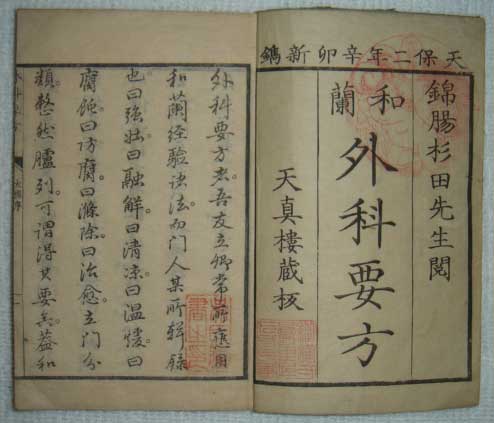 天保二年辛卯新鐫
錦腸杉田先生閲
和蘭
外科要方
天真樓蔵板
外科要方者吾友立卿常所應用
和蘭経驗诸法而门人某所輯録
也曰強壯曰融解曰清凉曰温煖曰
腐蝕曰防腐曰滌除曰治愈立门分
類整然臚列可謂得其要矣蓋和